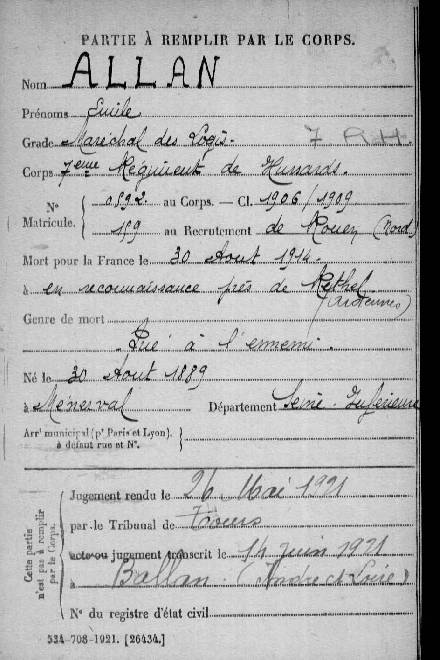 PARTIE À REMPLIR PAR LE CORPS.
Nom ALLAN
Prénoms Emile
Grade Maréchal des Logis. 7 R.H.
Corps 7ème Régiment de Hussards.
N° Matricule. 0592. au Corps. — Cl. 1906/1909
159 au Recrutement de Rouen (Nord)
Mort pour la France le 30 Aout 1914.
à en reconnaissance près de Rethel (Ardennes)
Genre de mort
Tué à l'ennemi.
Né le 30 Aout 1889
à Menerval Département Seine-Inférieure
Arrt municipal (pr Paris et Lyon), à défaut rue et N°.
Cette partie n'est pas à remplir par le Corps.
Jugement rendu le 26 Mai 1921
par le Tribunal de Tours
acte ou jugement transcrit le 14 juin 1921
à Ballan. (Indre et Loire)
N° du registre d'état civil
534-708-1921. [26434.]